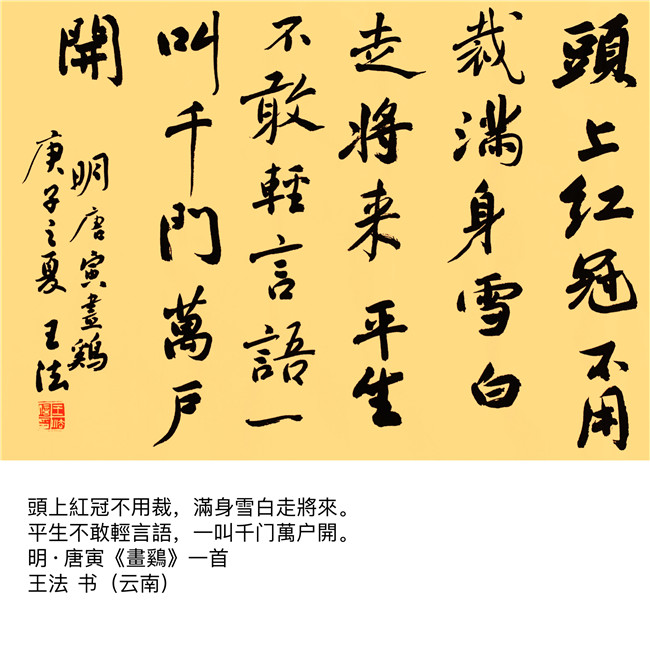 頭上红冠不用
裁满身雪白
走將来平生
不敢輕言語一
叫千門萬户
開
明唐寅畫鷄
庚子之夏王法
頭上紅冠不用裁，滿身雪白走將來。
平生不敢輕言語，一叫千门萬户開。
明·唐寅《畫鷄》一首
王法 书（云南）